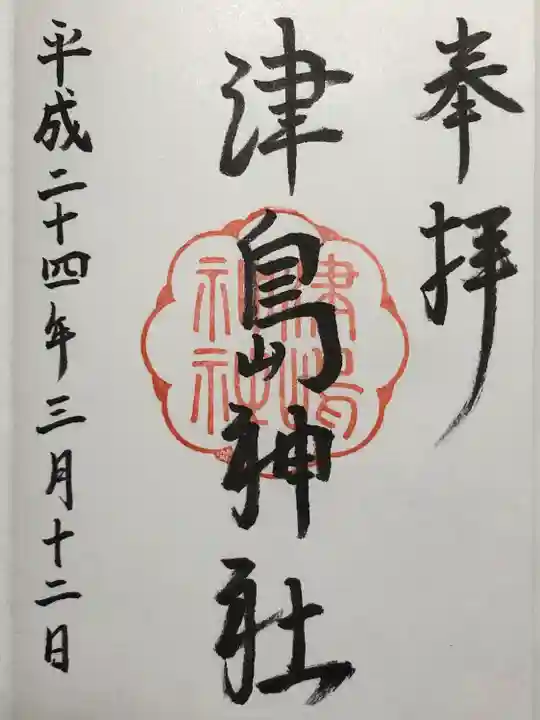 奉拝
津島神社
津島神社
平成二十四年三月十二日